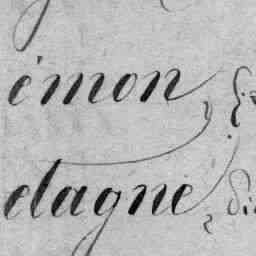 émon,
dagne,